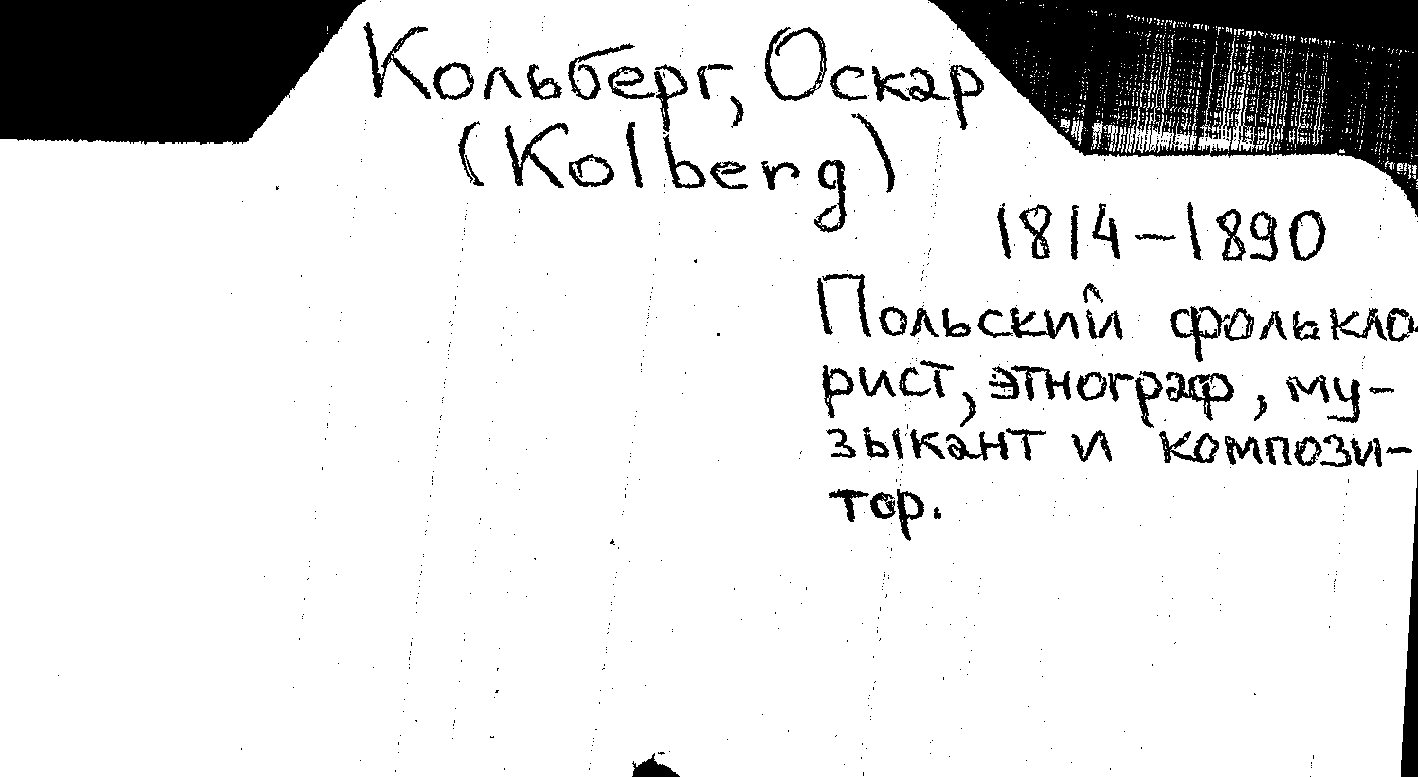 Кольберг, Оскар
(Kolberg)
1814–1890
Польский фолькло-
рист, этнограф, му-
зыкант и компози-
тор.